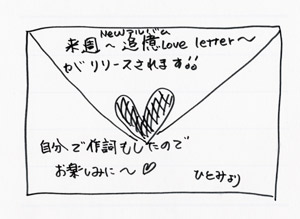 Newアルバム
来週〜追憶Love letter〜
がリリースされます!!
自分で作詞もしたので
お楽しみに〜♡
ひとみより